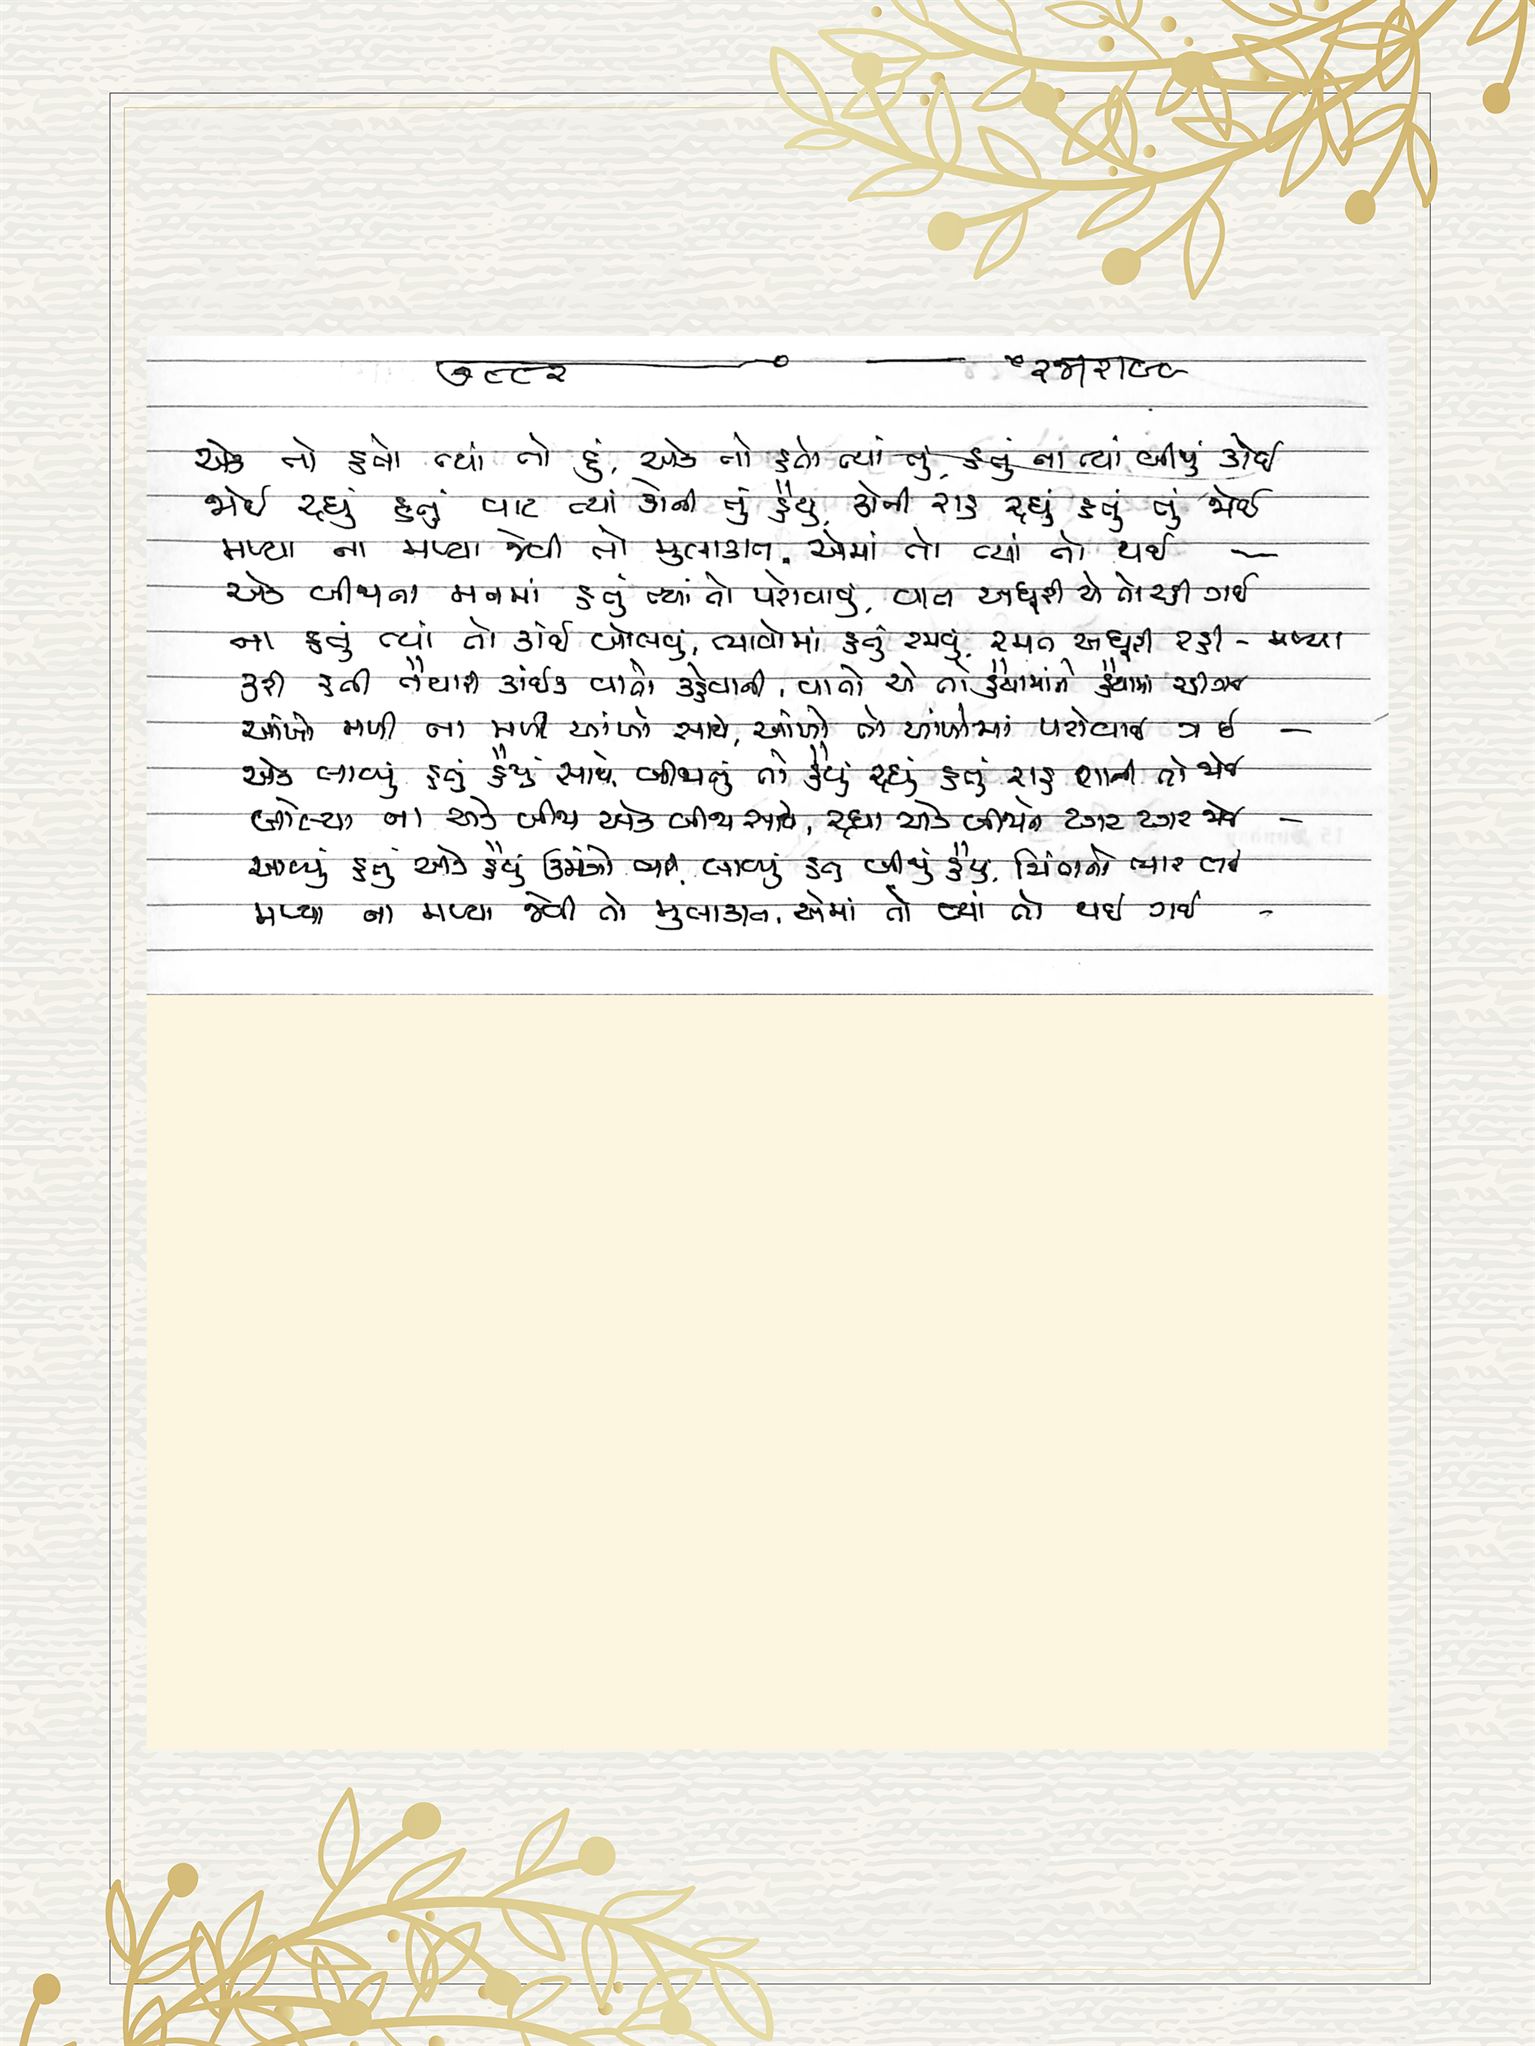 એક તો હતો ત્યાં તો હું, એક તો હતો ત્યાં તું, હતું ના ત્યાં બીજું કોઈ
જોઈ રહ્યું હતું વાટ ત્યાં કોની તું હૈયું, કોની રાહ રહ્યું હતું તું જોઈ
મળ્યા ના મળ્યા જેવી તો મુલાકાત, એમાં તો ત્યાં તો થઈ —
એક બીજાના મનમાં હતું ત્યાં તો પરોવાવું, વાત અધૂરી એ તો રહી ગઈ
ના હતું ત્યાં તો કાંઈ બોલવું, ભાવોમાં હતું રમવું, રમત અધૂરી રહી - મળ્યા
કરી હતી તૈયારી કાંઈક વાતો કહેવાની, વાતો એ તો હૈયામાંને હૈયામાં રહી ગઈ
આંખો મળી ના મળી આંખો સાથે, આંખો તો આંખોમાં પરોવાઈ ગઈ —
એક લાવ્યું હતું હૈયું સાથે, બીજાનું તો હૈયું રહ્યું હતું રાહ શાની તો જોઈ
બોલ્યા ના એક બીજા એક બીજા સાથે, રહ્યા એક બીજાને ટગર ટગર જોઈ —
આવ્યું હતું એક હૈયું ઉમંગો ભરી, લાવ્યું હતુ બીજું હૈયુ, ચિંતાનો ભાર લઈ
મળ્યા ના મળ્યા જેવી તો મુલાકાત, એમાં તો ત્યાં તો થઈ ગઈ -